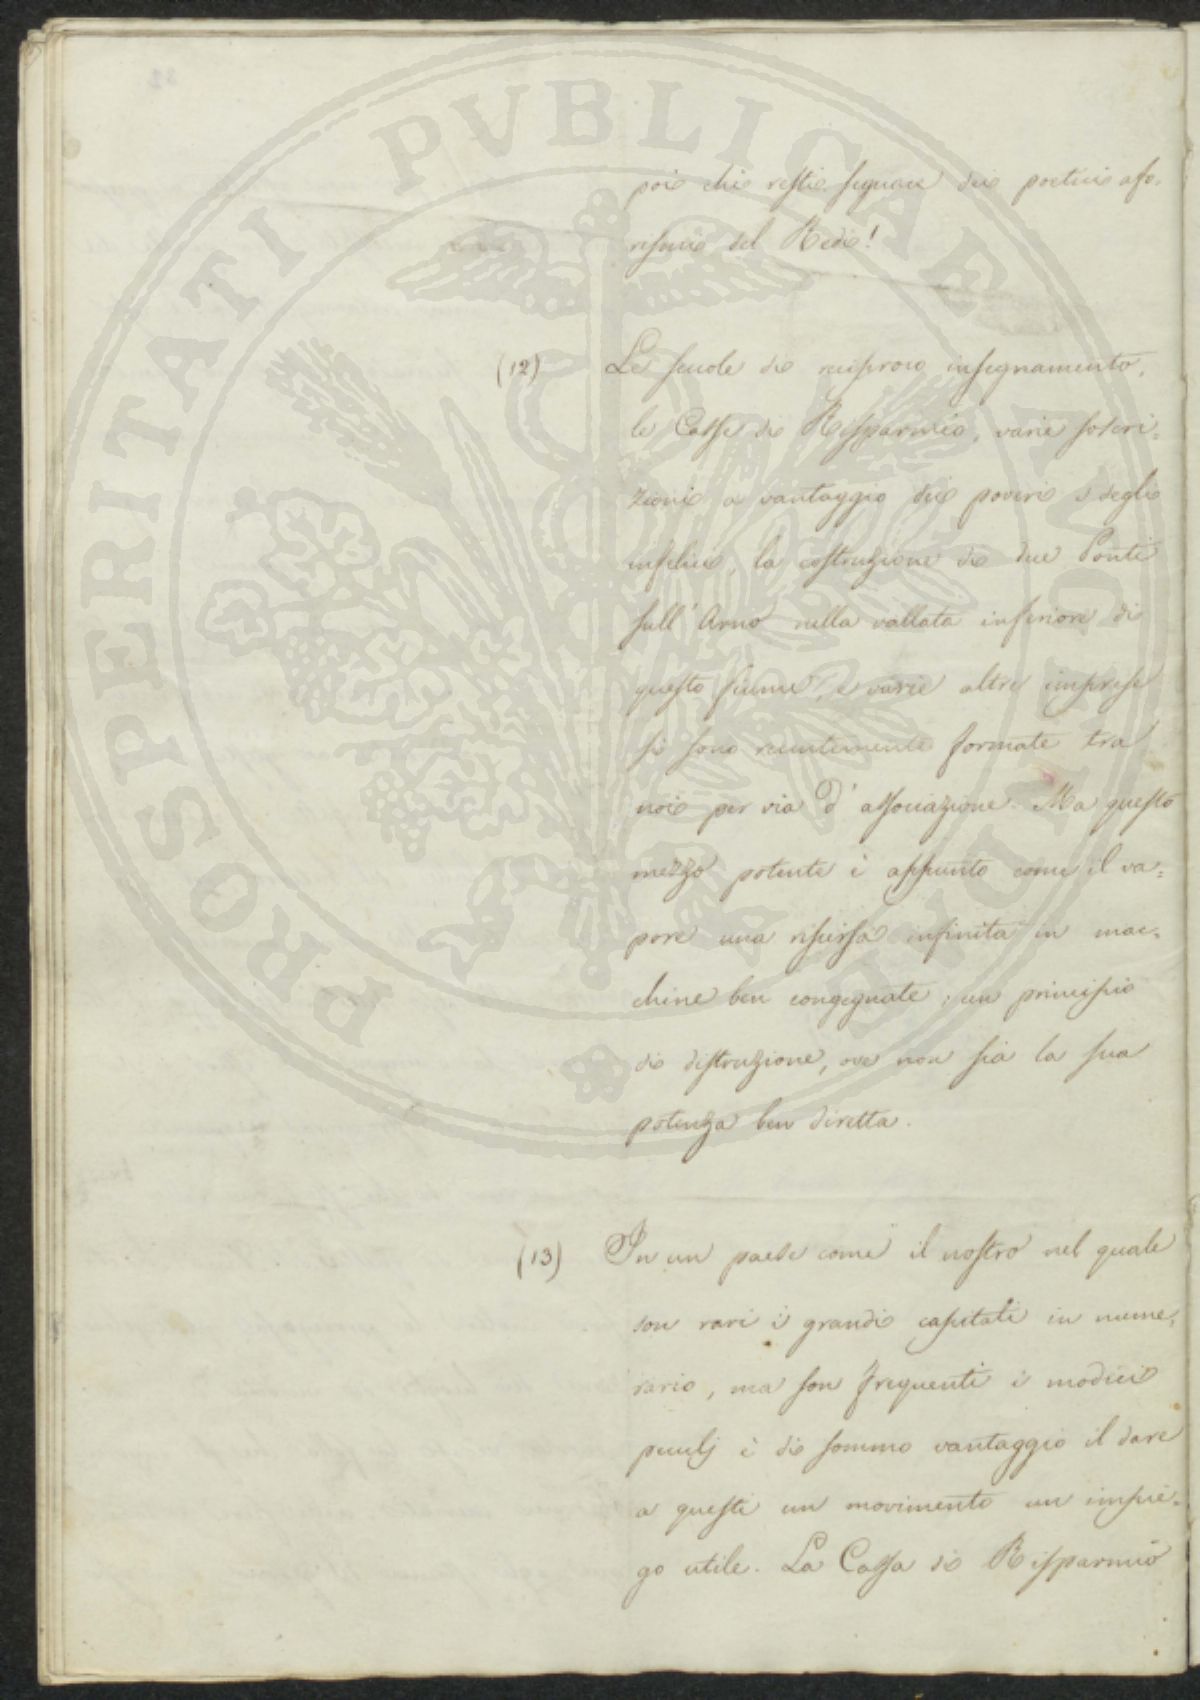 PROSPERITATI PVBLICAE AVGENDAE
poi chi resti seguace dei poetici afo-
rismi del Redi!
(12) Le scuole di reciproco insegnamento,
le Casse di Risparmio, varie soscri=
zioni a vantaggio dei poveri e degli
infelici, la costruzione di due Ponti
sull'Arno nella vallata inferiore di
questo fiume, e varie altre imprese
si sono recentemente formate tra
noi per via d'associazione. Ma questo
mezzo potente è appunto come il va=
pore una risorsa infinita in mac-
chine ben congegnate; un principio
di distruzione, ove non sia la sua
potenza ben diretta.
(13) In un paese come il nostro nel quale
son rari i grandi capitali in nume=
rario, ma son frequenti i modici
peculj è di sommo vantaggio il dare
a questi un movimento un impie-
go utile. La Cassa di Risparmio